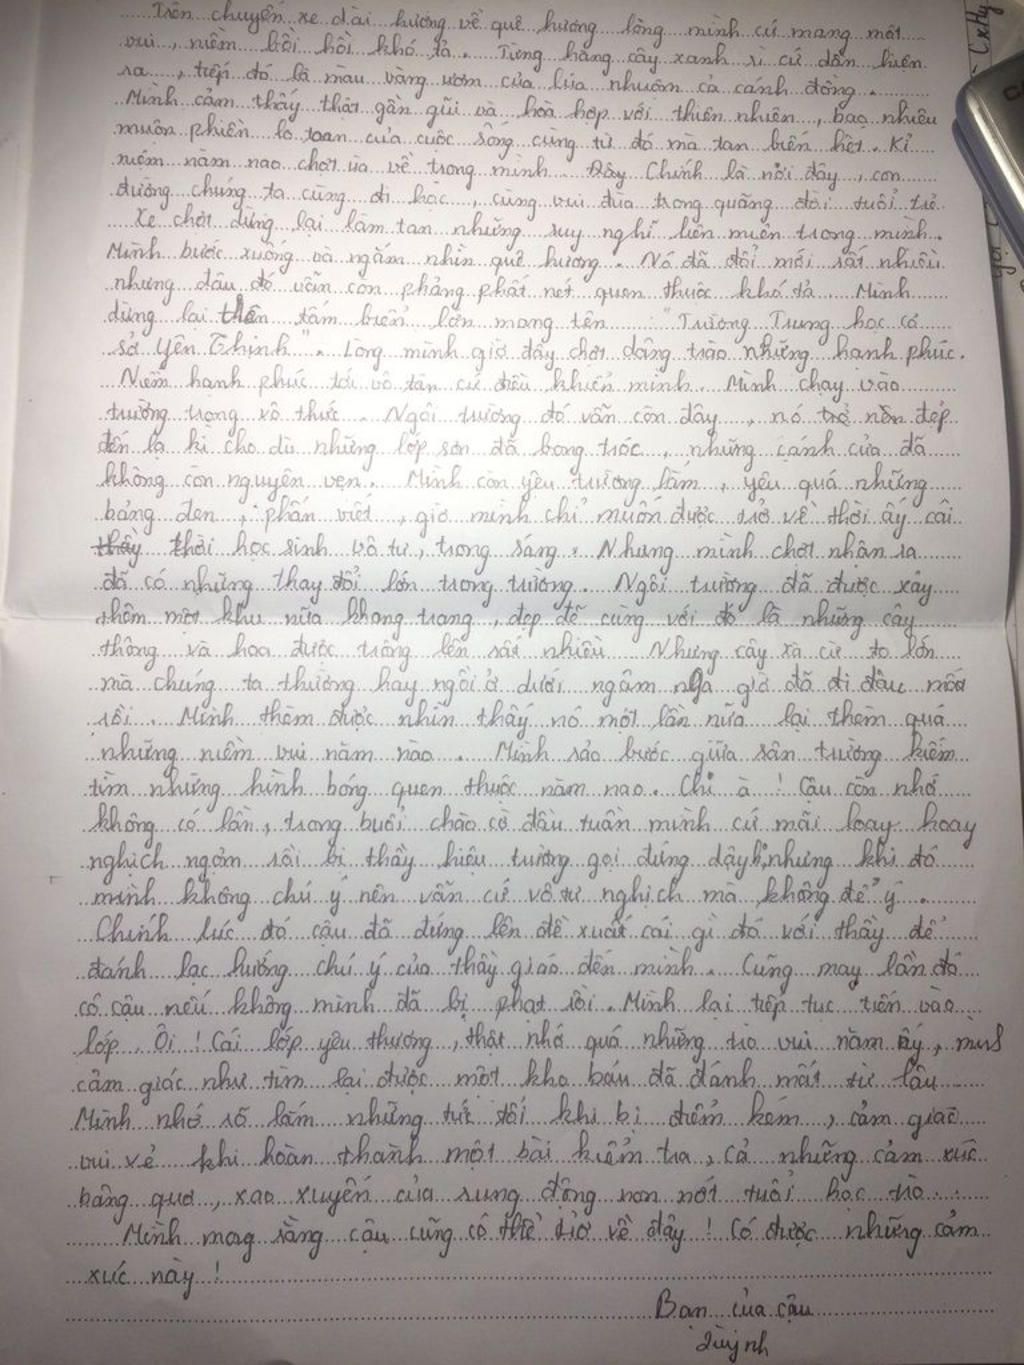 Trên chuyến xe dài hướng về quê hương lòng mình cứ mang một
vui, niềm bồi hồi khó tả. Từng hàng cây xanh rì cứ dần hiện
ra, tiếp đó là màu vàng ươm của lúa nhuốm cả cánh đồng.
Mình cảm thấy thật gần gũi và hoà hợp với thiên nhiên, bao nhiêu
muộn phiền lo toan của cuộc sống cũng từ đó mà tan biến hết. Kỉ
niệm năm nao chợt ùa về trong mình. Đây Chính là nơi đây, con
đường chúng ta cùng đi học, cùng vui đùa trong quãng đời tuổi trẻ.
Xe chợt dừng lại làm tan những suy nghĩ liên miên trong mình.
Mình bước xuống và ngắm nhìn quê hương. Nó đã đổi mới rất nhiều
nhưng đâu đó vẫn còn phảng phất nét quen thuộc khó tả. Mình
dừng lại trên tấm biển lớn mang tên "Trường Trung học cơ
sở Yên Thịnh". Lòng mình giờ đây chợt dâng trào những hạnh phúc.
Niềm hạnh phúc tới vô tận cứ điều khiển mình. Mình chạy vào
trường trong vô thức. Ngôi trường đó vẫn còn đây, nó trở nên đẹp
đến lạ kì cho dù những lớp sơn đã bong tróc, những cánh cửa đã
không còn nguyên vẹn. Mình còn yêu trường lắm, yêu quá những
bảng đen, phấn viết, giờ mình chỉ muốn được trở về thời ấy cái
thầy thời học sinh vô tư, trong sáng. Nhưng mình chợt nhận ra
đã có những thay đổi lớn trong trường. Ngôi trường đã được xây
thêm một khu nữa khang trang, đẹp đẽ cùng với đó là những cây
thông và hoa được trồng lên rất nhiều Nhưng cây xà cừ to lớn
mà chúng ta thường hay ngồi ở dưới ngâm nga giờ đã đi đâu mất
rồi. Mình thèm được nhìn thấy nó một lần nữa lại thèm quá
những niềm vui năm nào. Mình sảo bước giữa sân trường kiếm
tìm những hình bóng quen thuộc năm nao. Chi à! Cậu còn nhớ
không có lần, trong buổi chào cờ đầu tuần mình cứ mãi loay hoay
nghịch ngợm rồi bị thầy hiệu trưởng gọi đứng dậy, nhưng khi đó
mình không chú ý nên vẫn cứ vô tư nghịch mà không để ý.
Chính lúc đó cậu đã đứng lên đề xuất cái gì đó với thầy để
đánh lạc hướng chú ý của thầy giáo đến mình. Cũng may lần đó
có cậu nếu không mình đã bị phạt rồi. Mình lại tiếp tục tiến vào
lớp. Ôi! Cái lớp yêu thương, thật nhớ quá những trò vui năm ấy,
cảm giác như tìm lại được một kho báu đã đánh mất từ lâu
Mình nhớ rõ lắm những tức tối khi bị điểm kém, cảm giác
vui vẻ khi hoàn thành một bài kiểm tra, cả những cảm xúc
bâng quơ, xao xuyến của rung động non nớt tuổi học trò.
Mình mong rằng cậu cũng có thể trở về đây! Có được những cảm
xúc này!
Bạn của cậu
Quỳnh